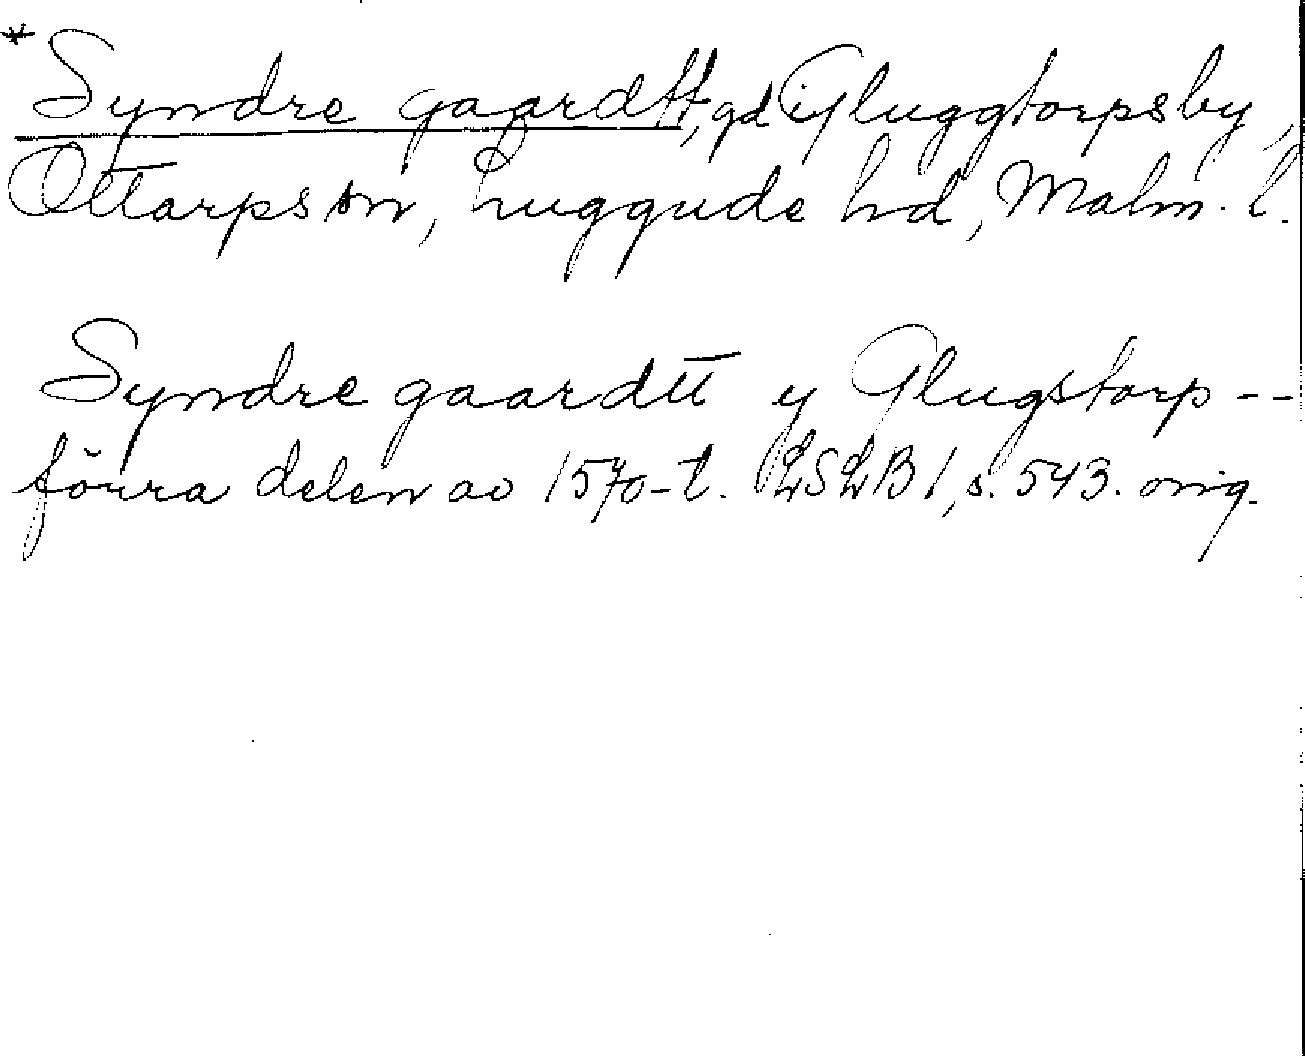 *Syndre gaardtt, gd i Gluggtorps by,
Ottarps sn, Luggude hd, Malm. l.
Syndre gaardtt y Glugstorp --
förra delen av 1570-t. LSLB 1, s. 543. orig.